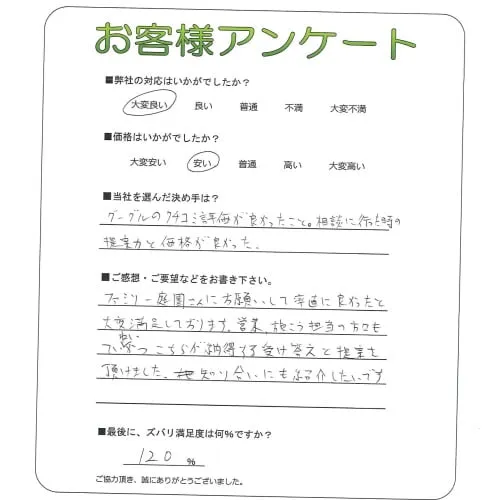 お客様アンケート
■弊社の対応はいかがでしたか？
大変良い 良い 普通 不満 大変不満
■価格はいかがでしたか？
大変安い 安い 普通 高い 大変高い
■当社を選んだ決め手は？
グーグルの クチコミ評価が良かったこと。相談に行った時の
提案力と価格が良かった。
■ご感想・ご要望などをお書き下さい。
ファミリー庭園さんにお願いして率直に良かったと
大変満足しております。営業、施こう担当の方々も
こちらが納得する受け答えと提案を
頂けました。知り合いにも紹介したいです
■最後に、ズバリ満足度は何%ですか？
120 %
ご協力頂き、誠にありがとうございました。